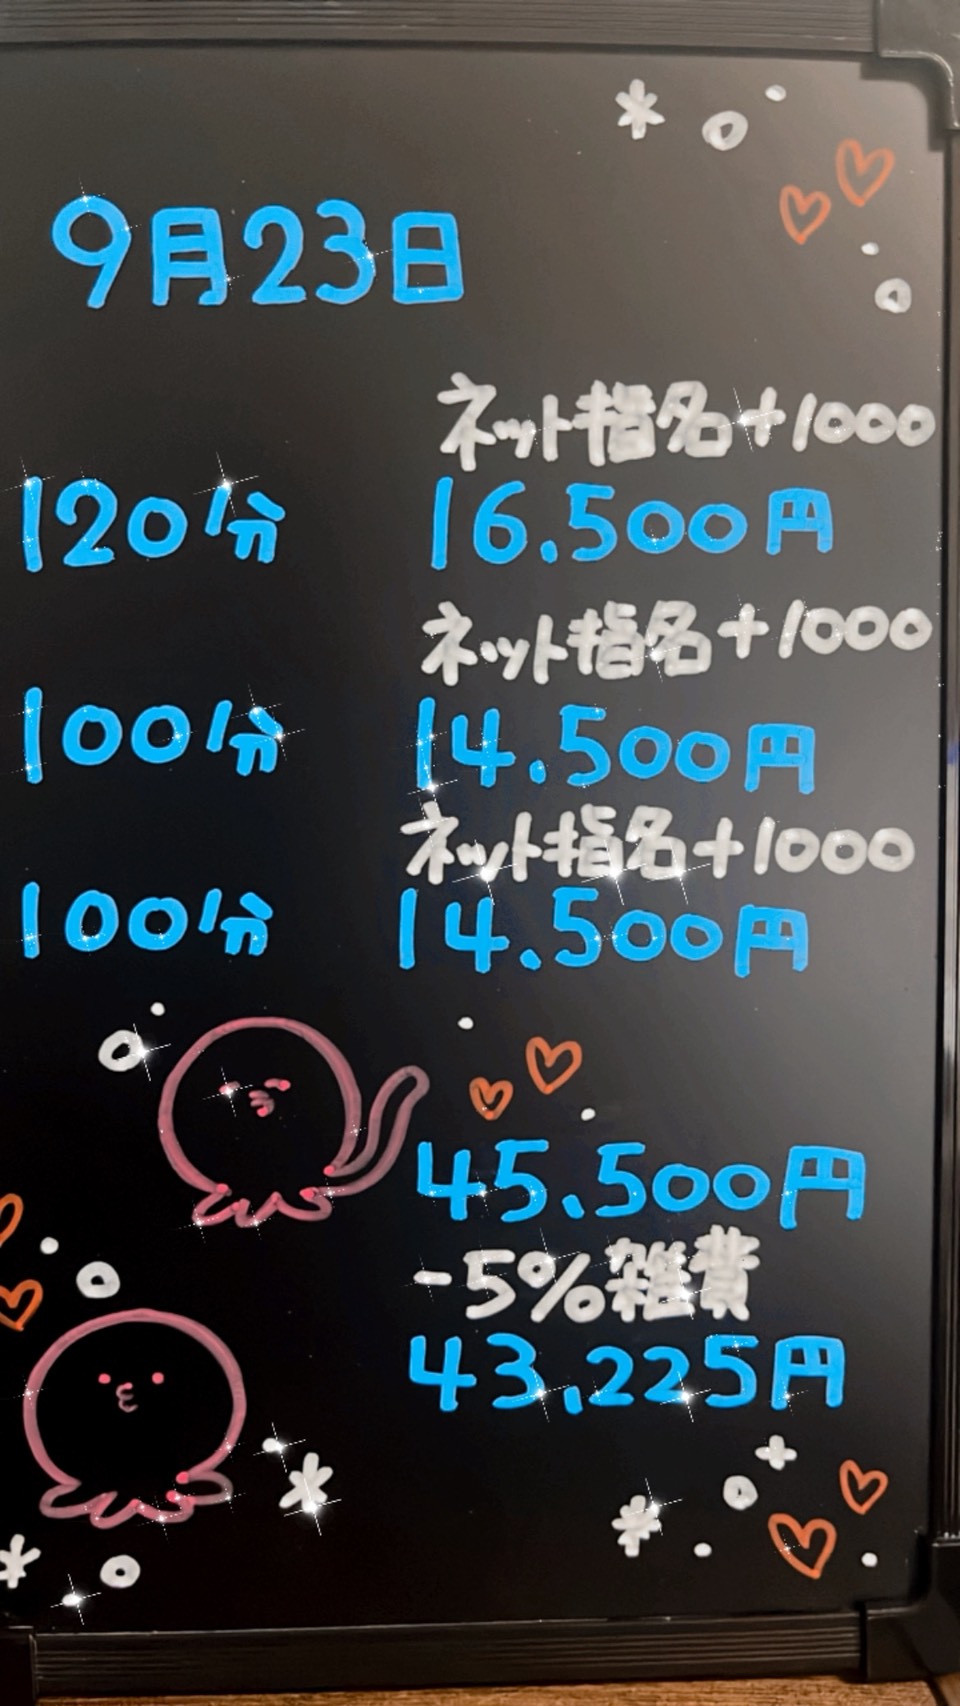 9月23日
ネット指名+1000
120分 16.500円
ネット指名+1000
100分 14.500円
ネット指名+1000
100分 14.500円
45.500円
-5%雑費
43,225円